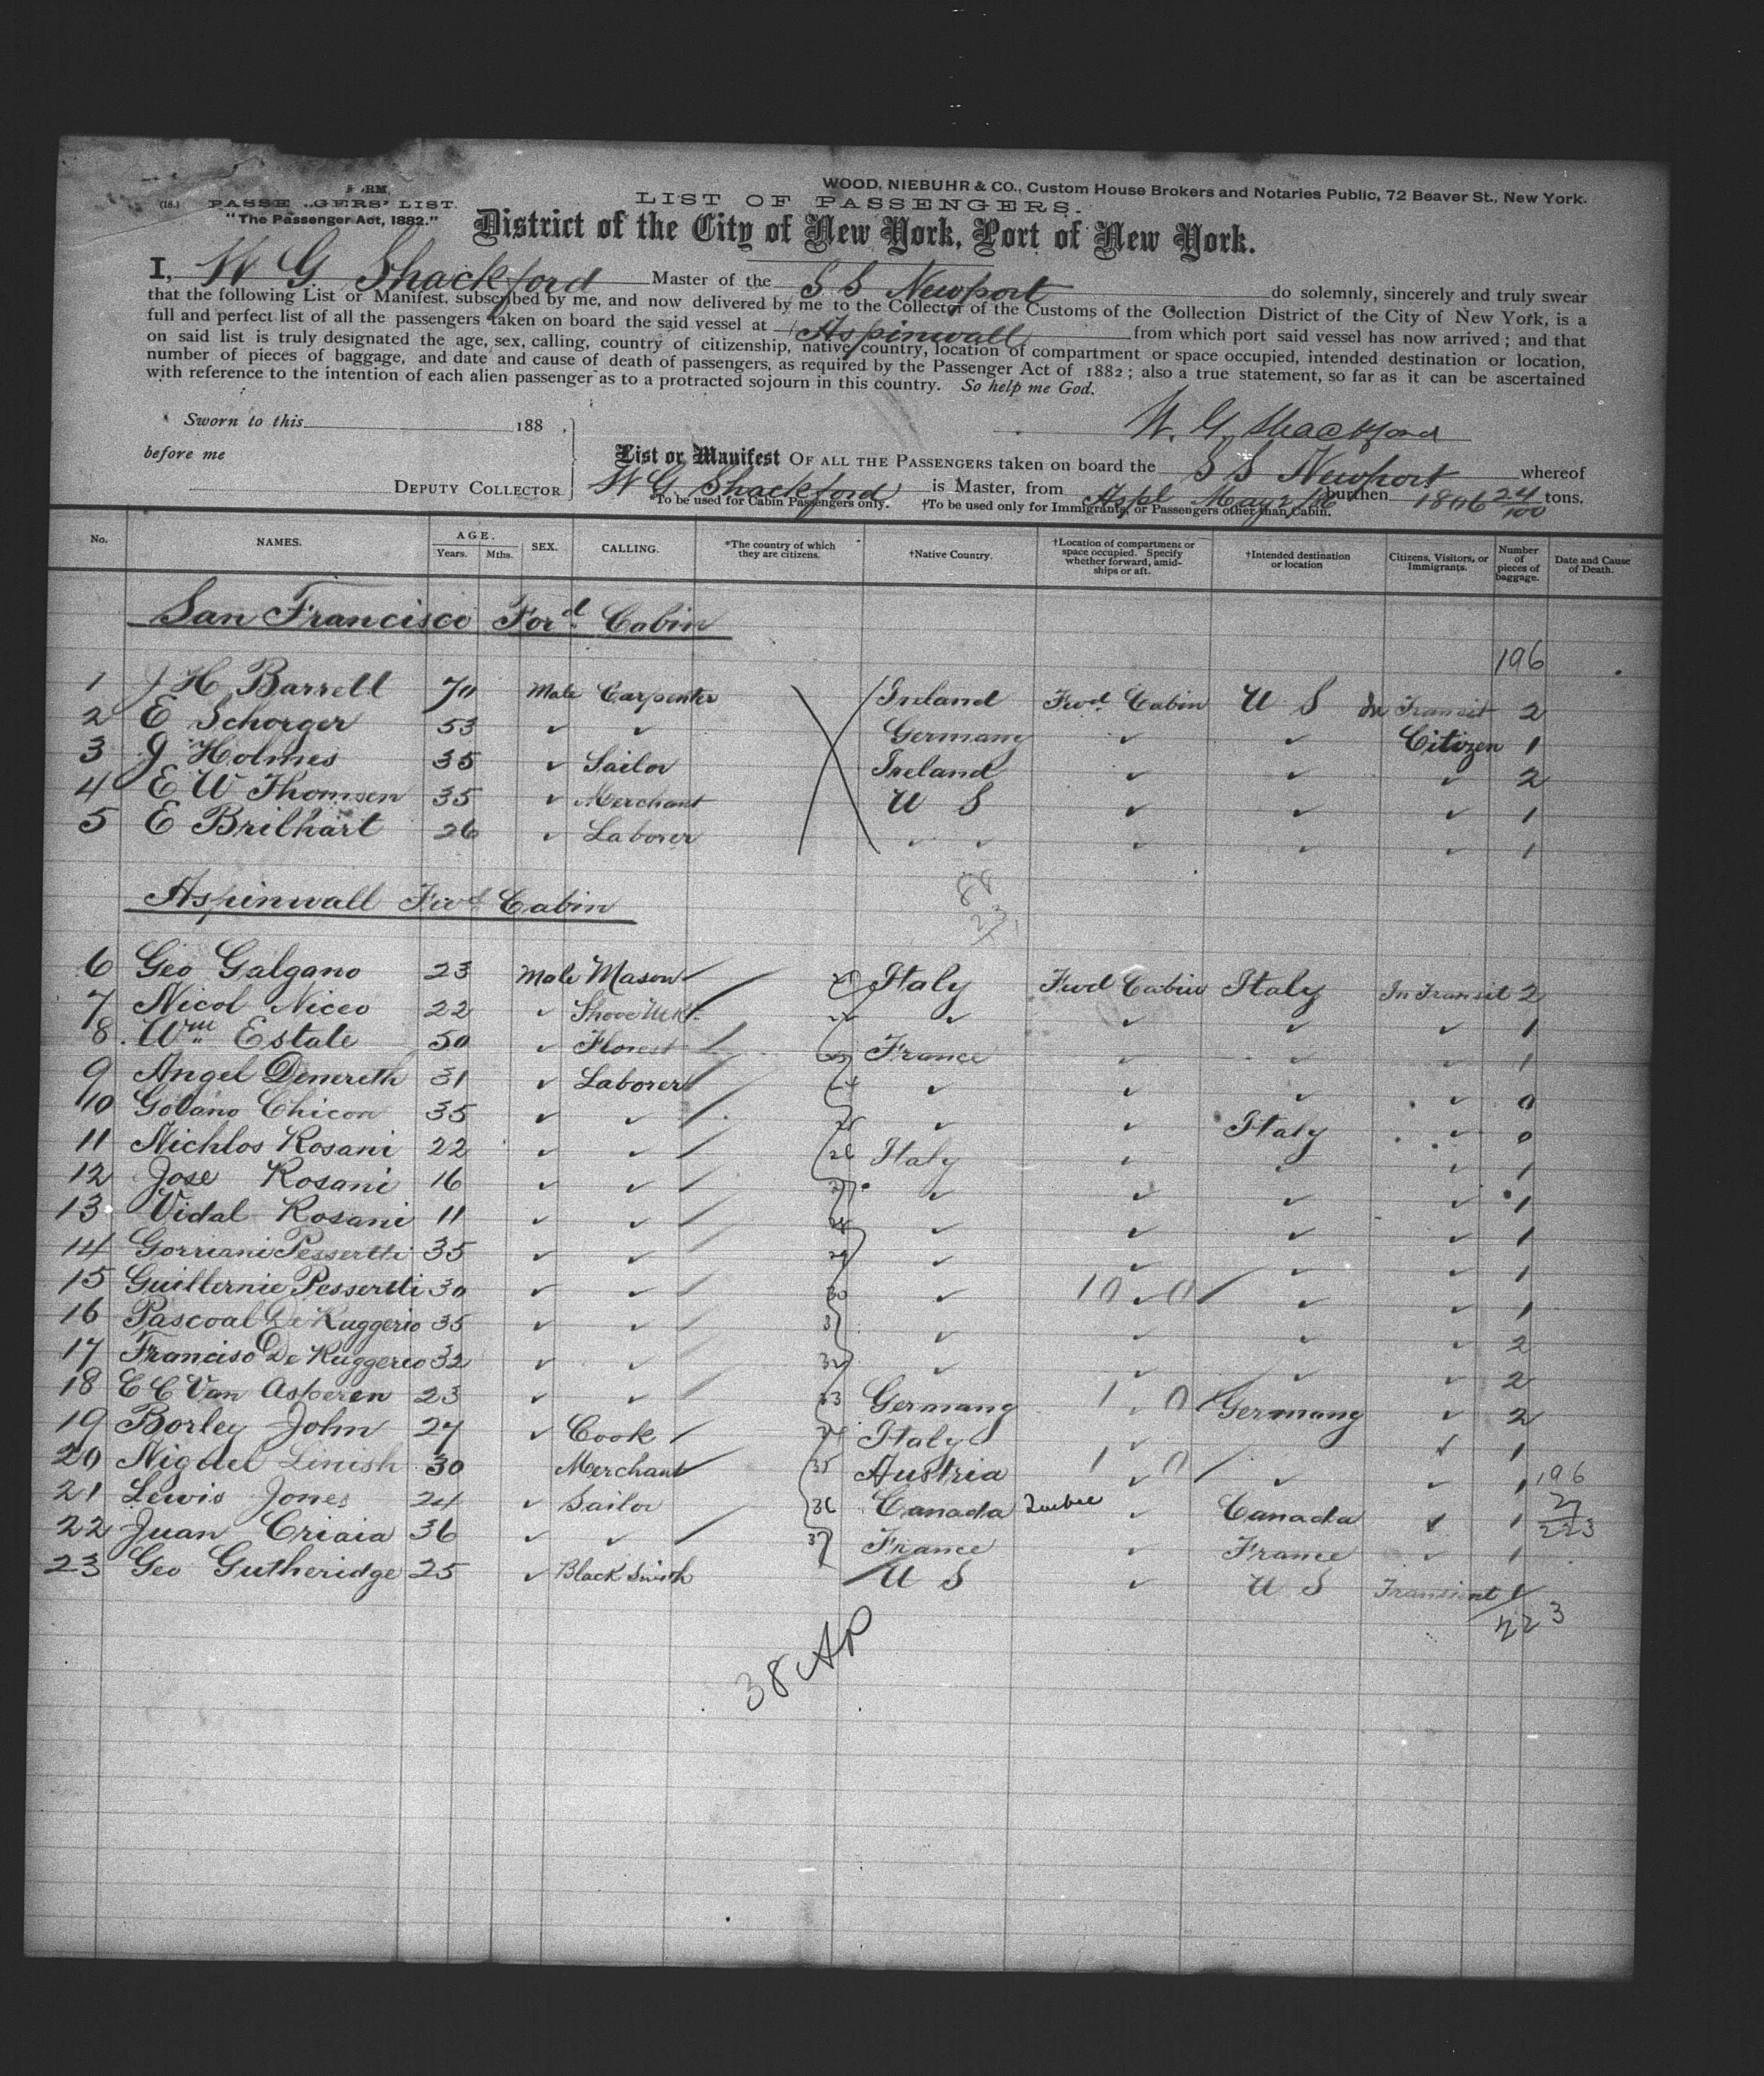 WOOD, NIEBUHR & CO., Custom House Brokers and Notaries Public, 72 Beaver St., New York.
(18.) PASSE GERS' LIST. LIST OF PASSENGERS.
"The Passenger Act, 1882."
District of the City of New York, Port of New York.
I, W G Shackford Master of the S S Newport do solemnly, sincerely and truly swear
that the following List or Manifest, subscribed by me, and now delivered by me to the Collector of the Customs of the Collection District of the City of New York, is a
full and perfect list of all the passengers taken on board the said vessel at Aspinwall from which port said vessel has now arrived; and that
on said list is truly designated the age, sex, calling, country of citizenship, native country, location of compartment or space occupied, intended destination or location,
number of pieces of baggage, and date and cause of death of passengers, as required by the Passenger Act of 1882; also a true statement, so far as it can be ascertained
with reference to the intention of each alien passenger as to a protracted sojourn in this country. So help me God.
Sworn to this 188
W. G. Shackford
before me
List or Manifest OF ALL THE PASSENGERS taken on board the S S Newport whereof
DEPUTY COLLECTOR W G Shackford is Master, from Aspl burthen 24/100 tons.
To be used for Cabin Passengers only. †To be used only for Immigrants, or Passengers other than Cabin.
No. NAMES. AGE. Years. Mths. SEX. CALLING. *The country of which they are citizens. †Native Country. †Location of compartment or space occupied. Specify whether forward, amidships or aft. †Intended destination or location Citizens, Visitors, or Immigrants. Number of pieces of baggage. Date and Cause of Death.
San Francisco Ford Cabin
196
1 J H Barrell 70 Male Carpenter Ireland Fwd Cabin U S In Transit 2
2 E Schorger 53 ✓ ✓ Germany ✓ ✓ Citizen 1
3 J Holmes 35 ✓ Sailor Ireland ✓ ✓ ✓ 2
4 E W Thomsen 35 ✓ Merchant U S ✓ ✓ ✓ 1
5 E Brilhart 26 ✓ Laborer ✓ ✓ ✓ ✓ ✓ 1
Aspinwall Fwd Cabin
88
23
6 Geo Galgano 23 Male Mason Italy Fwd Cabin Italy In Transit 2
7 Nicol Niceo 22 ✓ ✓ ✓ ✓ ✓ 1
8 Wm Estale 50 ✓ Florest France ✓ ✓ ✓ 1
9 Angel Denereth 31 ✓ Laborer 24 ✓ ✓ ✓ ✓ 0
10 Golano Chicon 35 ✓ ✓ 25 ✓ ✓ Italy ✓ 0
11 Nichlos Rosani 22 ✓ ✓ 26 Italy ✓ ✓ ✓ 1
12 Jose Rosani 16 ✓ ✓ 27 ✓ ✓ ✓ ✓ 1
13 Vidal Rosani 11 ✓ ✓ 28 ✓ ✓ ✓ ✓ 1
14 Gorriani Pessertti 35 ✓ ✓ 29 ✓ ✓ ✓ ✓ 1
15 Guillernie Pessertti 30 ✓ ✓ 30 ✓ 10 ✓ 0 ✓ ✓ 1
16 Pascoal De Ruggerio 35 ✓ ✓ 31 ✓ ✓ ✓ ✓ 2
17 Franciso De Ruggerio 32 ✓ ✓ 32 ✓ ✓ ✓ ✓ 2
18 E C Van Asperen 23 ✓ ✓ 33 Germany 1 ✓ 0 Germany ✓ 2
19 Borley John 27 ✓ Cook 34 Italy ✓ ✓ 1
20 Nigolel Linish 30 Merchant 35 Austria 1 ✓ 0 ✓ ✓ 1 196
21 Lewis Jones 24 ✓ Sailor 36 Canada Quebec ✓ Canada ✓ 1 27
22 Juan Criaia 36 ✓ ✓ 37 France ✓ France ✓ 1 223
23 Geo Gutheridge 25 ✓ Black Smith U S ✓ U S Transient 1
223
38 AP